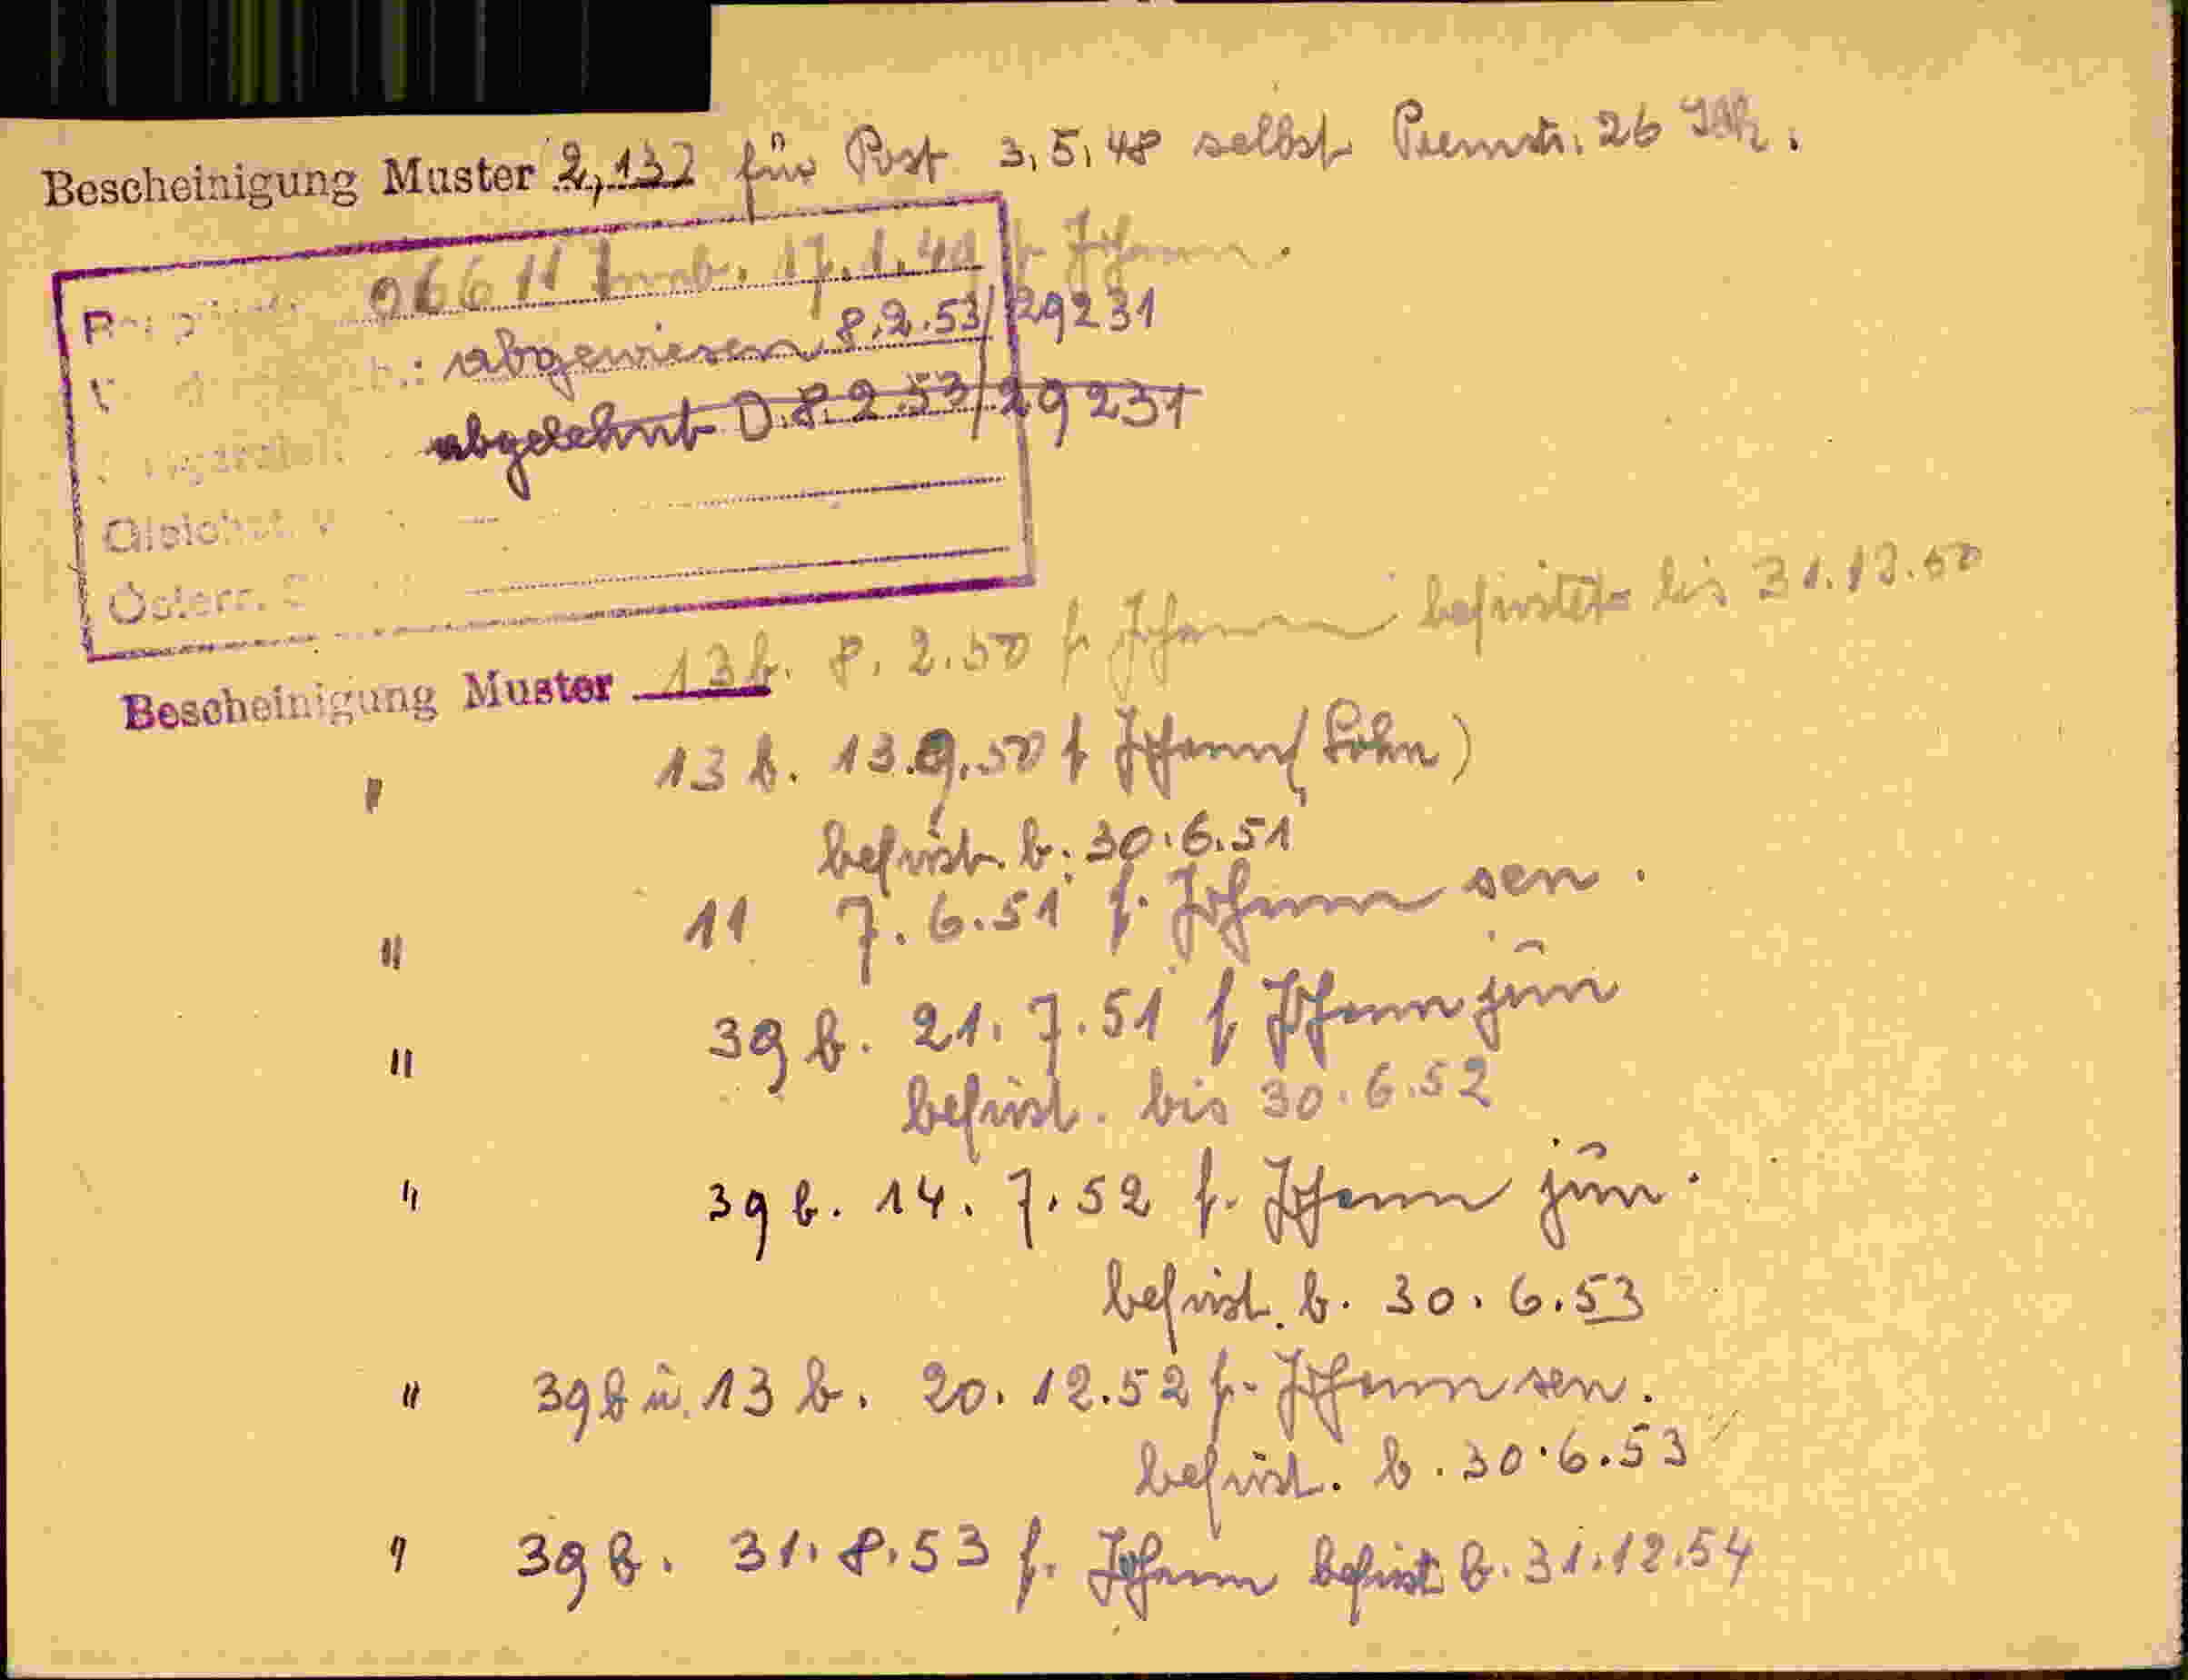 Bescheinigung Muster 2,132 für Post 3,5,48 selbst Premstr. 26
06611 Innb. 17.1.49 f Johann.
abgewiesen 8.2.53/29231
abgelehnt D.8.2.53/29231
Gleichst.
Österr.
Bescheinigung Muster 13b. 8.2.50 f Johann befristet bis 31.12.50
" 13 b. 13.9.50 f Johann (Sohn)
befrist. b. 30.6.51
" 11 7.6.51 f. Johann sen.
" 39 b. 21.7.51 f Johann jun
befrist. bis 30.6.52
" 39 b. 14.7.52 f. Johann jun.
befrist. b. 30.6.53
" 39b u. 13 b. 20.12.52 f. Johann sen.
befrist. b. 30.6.53
" 39 b. 31.8.53 f. Johann befrist b. 31.12.54